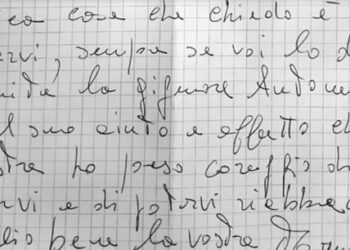 ca cosa che chiedo è
rvi, sempre se voi lo d
la signora Anton
l suo aiuto e affetto e
stra ho preso coraggio di
rvi e di potervi riabbrac
lio bene la vostra